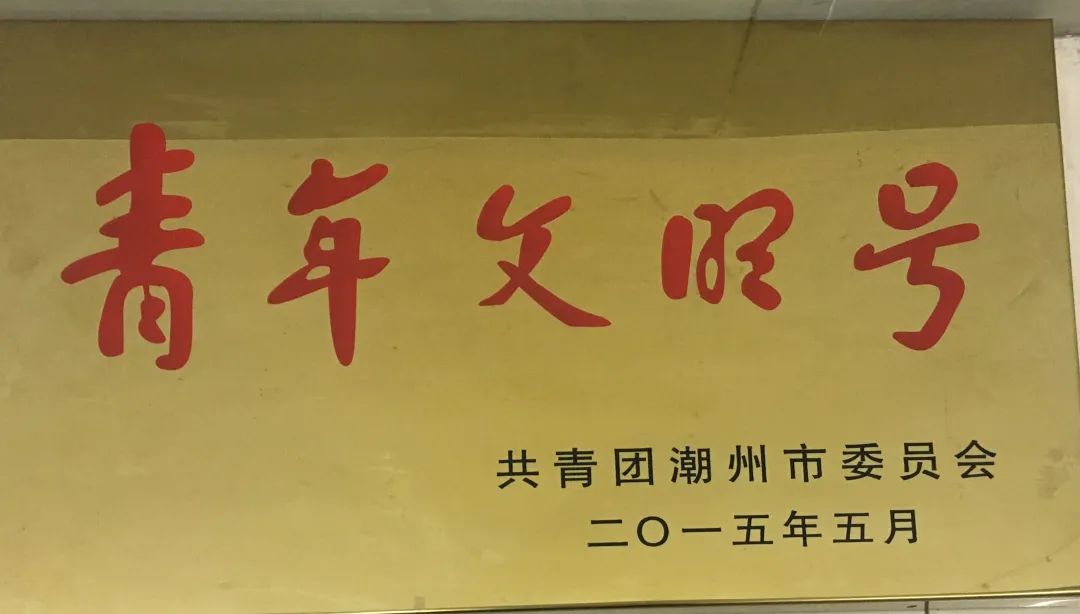 青年文明号
共青团潮州市委员会
二〇一五年五月